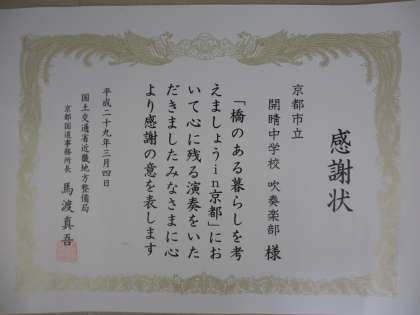 感謝状
京都市立
開睛中学校 吹奏楽部 様
「橋のある暮らしを考
えましょうin京都」にお
いて心に残る演奏をいた
だきましたみなさまに心
より感謝の意を表します
平成二十九年三月四日
国土交通省近畿地方整備局
京都国道事務所長 馬渡真吾